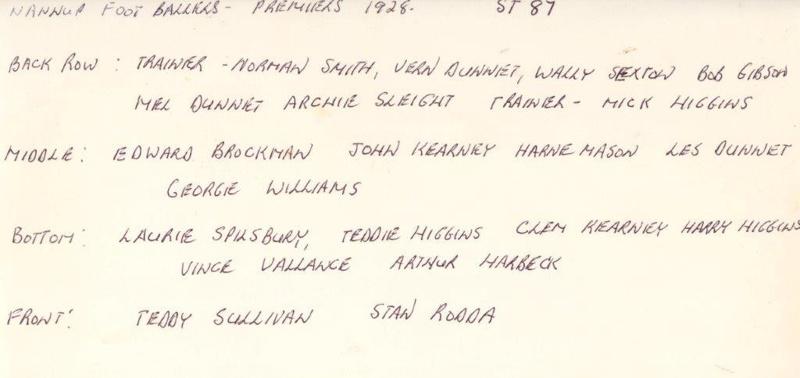 NANNUP FOOT BALLERS - PREMIERS 1928. ST 87
BACK ROW : TRAINER - NORMAN SMITH, VERN DUNNET, WALLY SEXTON BOB GIBSON
MEL DUNNET ARCHIE SLEIGHT TRAINER - MICK HIGGINS
MIDDLE : EDWARD BROCKMAN JOHN KEARNEY HARNE MASON LES DUNNET
GEORGIE WILLIAMS
BOTTOM : LAURIE SPILSBURY, TEDDIE HIGGINS CLEM KEARNEY HARRY HIGGINS
VINCE VALLANCE ARTHUR HARBECK
FRONT : TEDDY SULLIVAN STAN RODDA